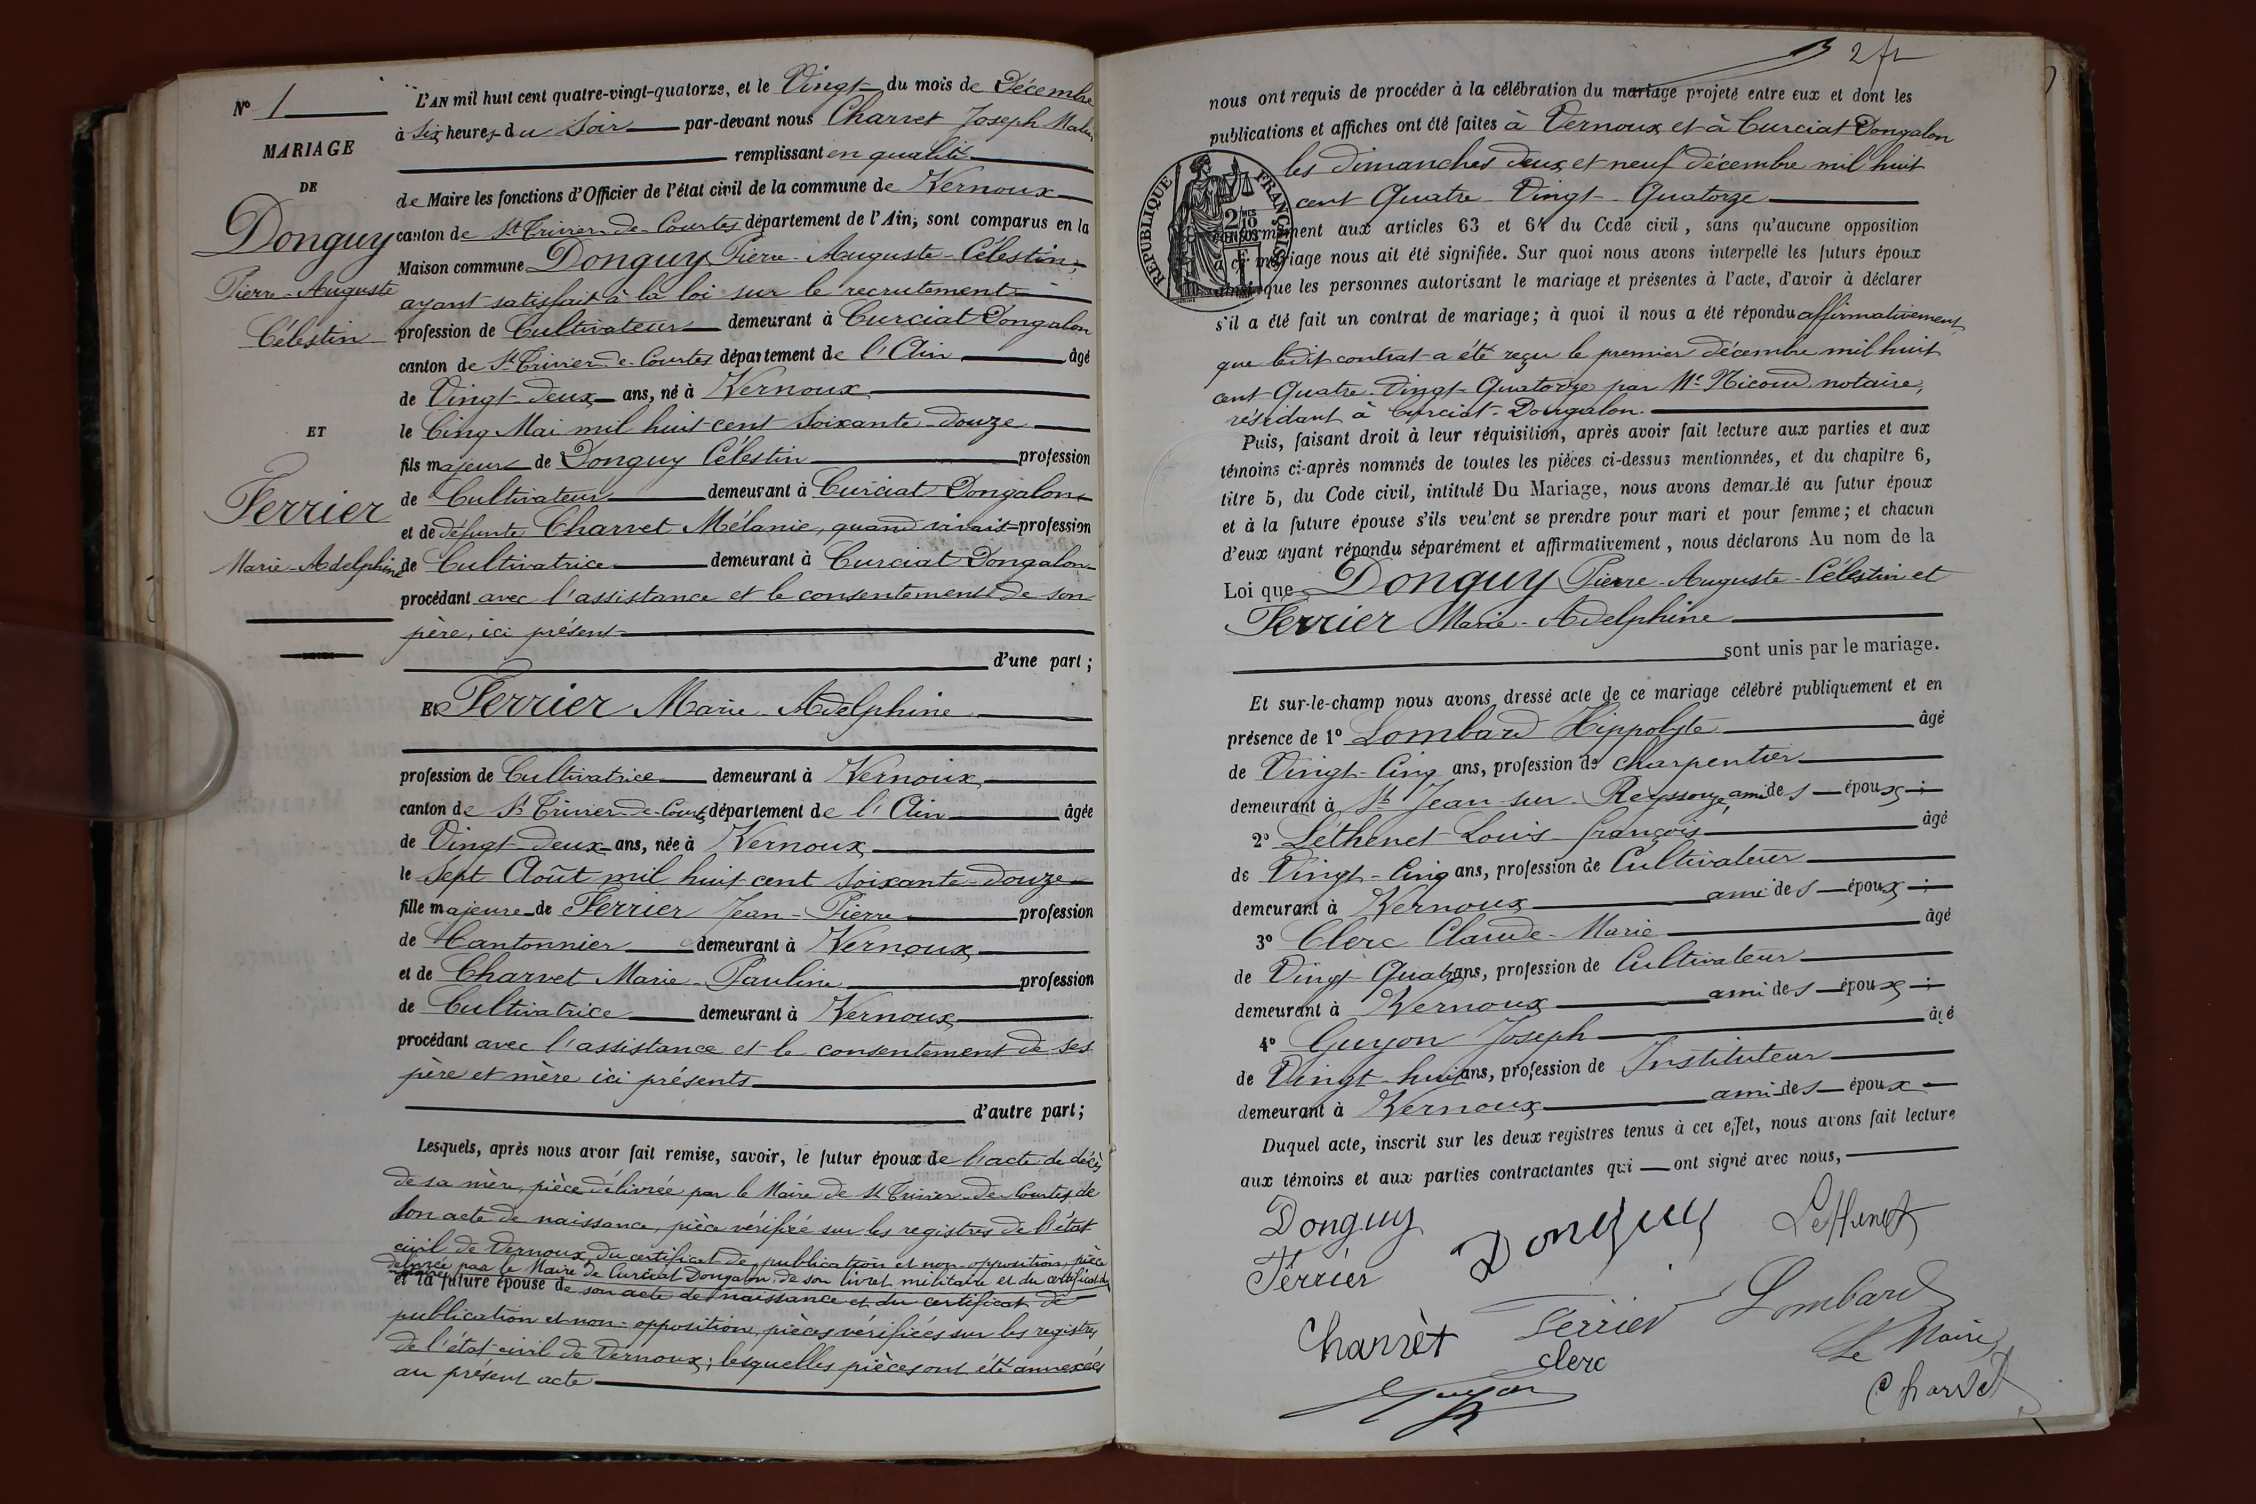 Nº 1
MARIAGE
DE
Donguy
Pierre-Auguste
Célestin
ET
Ferrier
Marie-Adelphine
L'AN mil huit cent quatre-vingt-quatorze, et le Vingt du mois de Décembre
à six heures du Soir par-devant nous Charvet Joseph
remplissant en qualité
de Maire les fonctions d'Officier de l'état civil de la commune de Vernoux
canton de St Trivier-de-Courtes département de l'Ain, sont comparus en la
Maison commune Donguy Pierre-Auguste-Célestin,
ayant satisfait à la loi sur le recrutement
profession de Cultivateur demeurant à Curciat Dongalon
canton de St Trivier-de-Courtes département de l'Ain âgé
de Vingt-deux ans, né à Vernoux
le Cinq Mai mil huit-cent soixante-douze
fils majeur de Donguy Célestin profession
de Cultivateur demeurant à Curciat Dongalon
et de défunte Charvet Mélanie, quand vivait profession
de Cultivatrice demeurant à Curciat Dongalon
procédant avec l'assistance et le consentement de son
père, ici présent
d'une part;
Et Ferrier Marie-Adelphine
profession de Cultivatrice demeurant à Vernoux
canton de St Trivier-de-Courtes département de l'Ain âgée
de Vingt-deux ans, née à Vernoux
le Sept Août mil huit cent soixante-douze
fille majeure de Ferrier Jean-Pierre profession
de Cantonnier demeurant à Vernoux
et de Charvet Marie-Pauline profession
de Cultivatrice demeurant à Vernoux
procédant avec l'assistance et le consentement de ses
père et mère ici présents
d'autre part;
Lesquels, après nous avoir fait remise, savoir, le futur époux de l'acte de décès
de sa mère, pièce délivrée par le Maire de St Trivier-de-Courtes, de
son acte de naissance, pièce vérifiée sur les registres de l'état
civil de Vernoux, du certificat de publication et non-opposition, pièce
délivrée par le Maire de Curciat Dongalon, de son livret militaire et du certificat du
et la future épouse de son acte de naissance et du certificat de
publication et non-opposition, pièces vérifiées sur les registres
de l'état-civil de Vernoux; lesquelles pièces ont été annexées
au présent acte
2 fr
nous ont requis de procéder à la célébration du mariage projeté entre eux et dont les
publications et affiches ont été faites à Vernoux et à Curciat Dongalon
les dimanches deux et neuf décembre mil huit
cent Quatre-Vingt-Quatorze
RÉPUBLIQUE FRANÇAISE
2/10
conformément aux articles 63 et 64 du Code civil, sans qu'aucune opposition
à ce mariage nous ait été signifiée. Sur quoi nous avons interpellé les futurs époux
ainsi que les personnes autorisant le mariage et présentes à l'acte, d'avoir à déclarer
s'il a été fait un contrat de mariage; à quoi il nous a été répondu affirmativement
que ledit contrat a été reçu le premier décembre mil huit
cent Quatre-Vingt-Quatorze par Me Nicoud notaire,
résidant à Curciat-Dongalon.
Puis, faisant droit à leur réquisition, après avoir fait lecture aux parties et aux
témoins ci-après nommés de toutes les pièces ci-dessus mentionnées, et du chapitre 6,
titre 5, du Code civil, intitulé Du Mariage, nous avons demandé au futur époux
et à la future épouse s'ils veulent se prendre pour mari et pour femme; et chacun
d'eux ayant répondu séparément et affirmativement, nous déclarons Au nom de la
Loi que Donguy Pierre-Auguste-Célestin et
Ferrier Marie-Adelphine
sont unis par le mariage.
Et sur-le-champ nous avons dressé acte de ce mariage célébré publiquement et en
présence de 1º Lombard Hippolyte âgé
de Vingt-Cinq ans, profession de charpentier
demeurant à St Jean-sur-Reyssouze, ami des époux;
2º Léthenet Louis-François âgé
de Vingt-Cinq ans, profession de Cultivateur
demeurant à Vernoux ami des époux;
3º Clerc Claude-Marie âgé
de Vingt-Quatre ans, profession de Cultivateur
demeurant à Vernoux ami des époux;
4º Guyon Joseph âgé
de Vingt-huit ans, profession de Instituteur
demeurant à Vernoux ami des époux
Duquel acte, inscrit sur les deux registres tenus à cet effet, nous avons fait lecture
aux témoins et aux parties contractantes qui ont signé avec nous,
Donguy Donguy Lethenet
Férrier
Charvèt Ferrier Lombard
Clerc Le Maire
Guyon Charvet